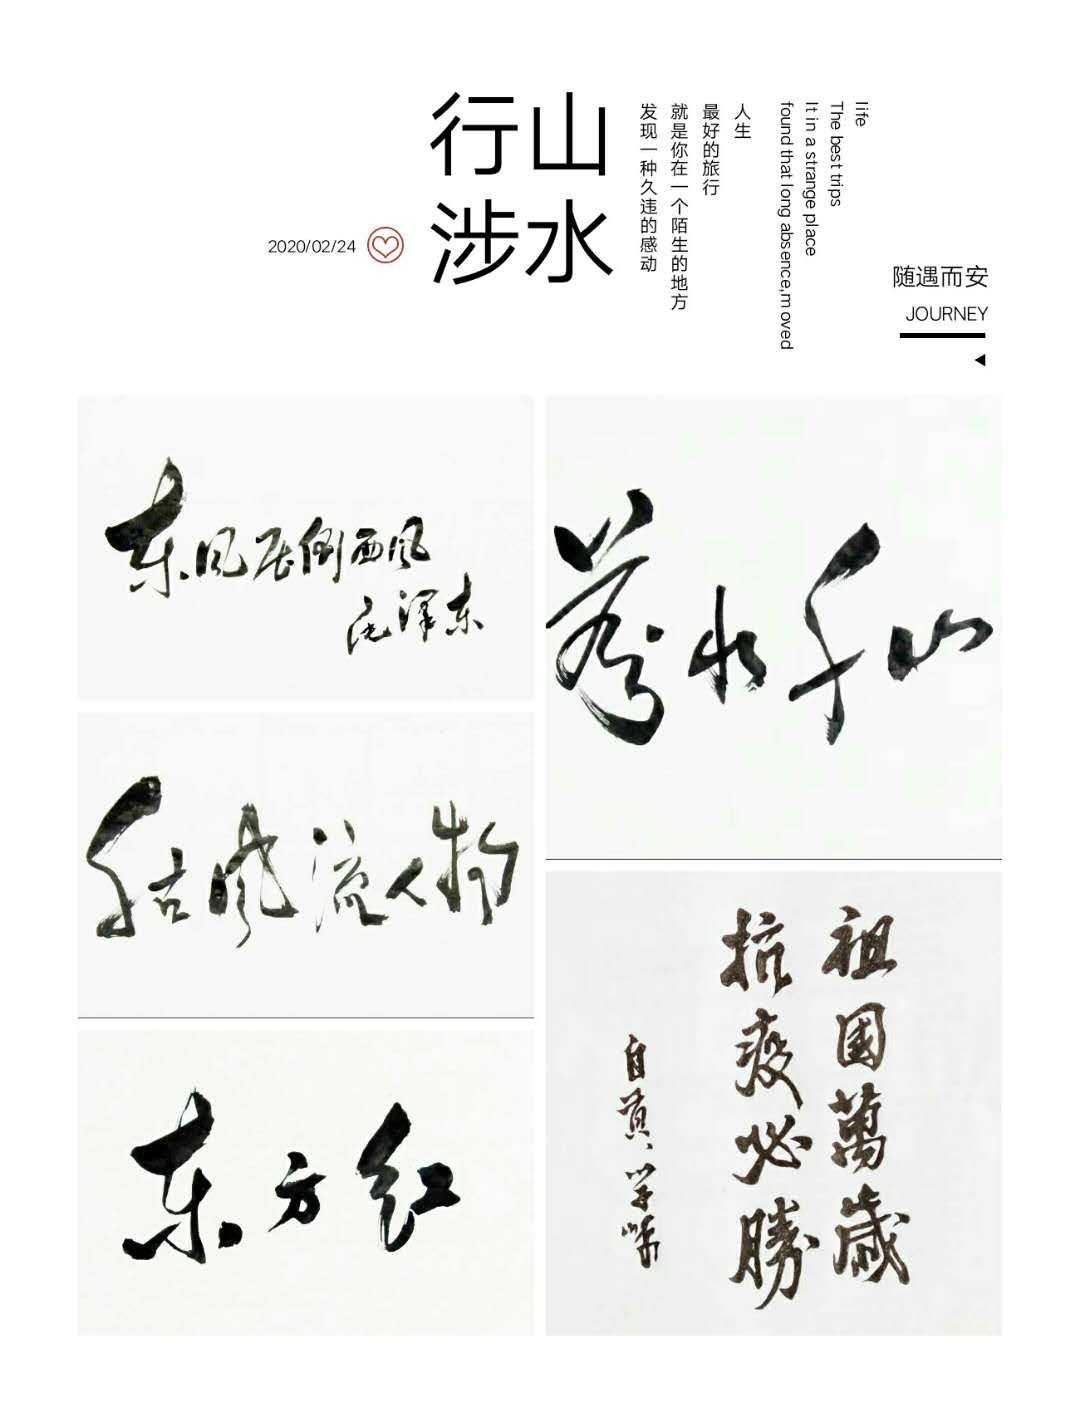 行山
涉水
2020/02/24
发现一种久违的感动
就是你在一个陌生的地方
最好的旅行
人生
life
The best trips
It in a strange place
found that long absence,moved
随遇而安
JOURNEY
东风压倒西风
毛泽东
万水千山
千古风流人物
东方红
祖国萬歲
抗疫必勝